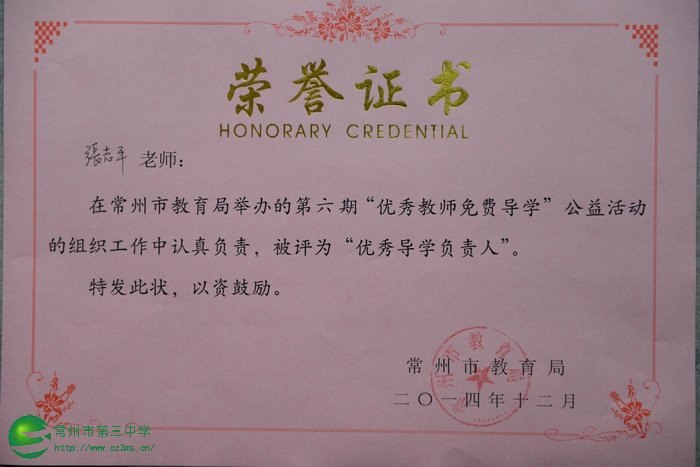 荣誉证书
HONORARY CREDENTIAL
張志平 老师：
在常州市教育局举办的第六期“优秀教师免费导学”公益活动
的组织工作中认真负责，被评为“优秀导学负责人”。
特发此状，以资鼓励。
常州市教育局
常州市教育局
二〇一四年十二月
常州市第三中学
http://www.cz3ms.cn/